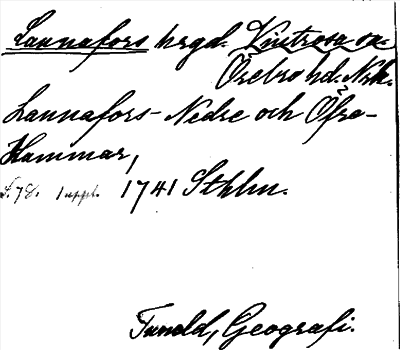 Lannafors hrgd. Kintrosa sn.
Örebro hd. Nrk.
Lannafors- Nedre och Öfre-
Hammar,
s. 78. 1 uppl. 1741 Sthlm.
Tuneld, Geografi.